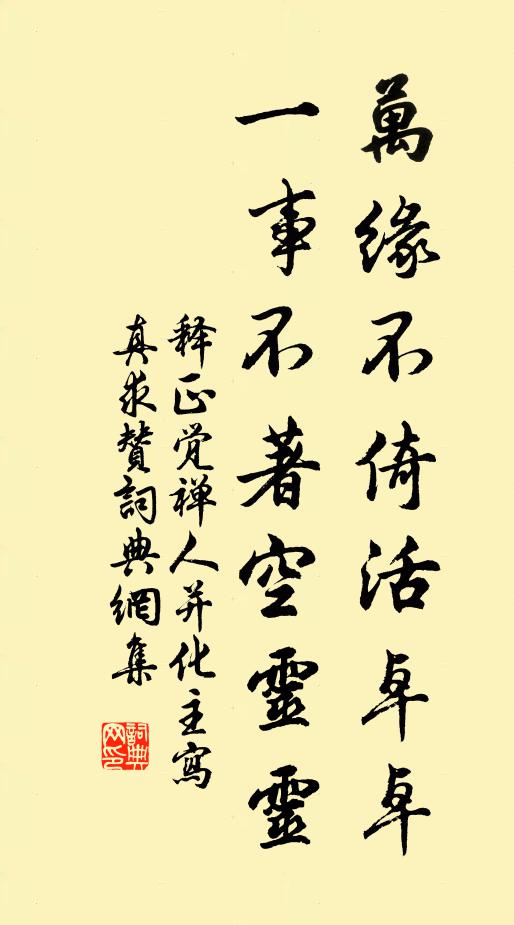 萬緣不倚活卓卓
一事不著空靈靈
释正觉禅人并化主寫
真求贊詞典網集
詞典网印